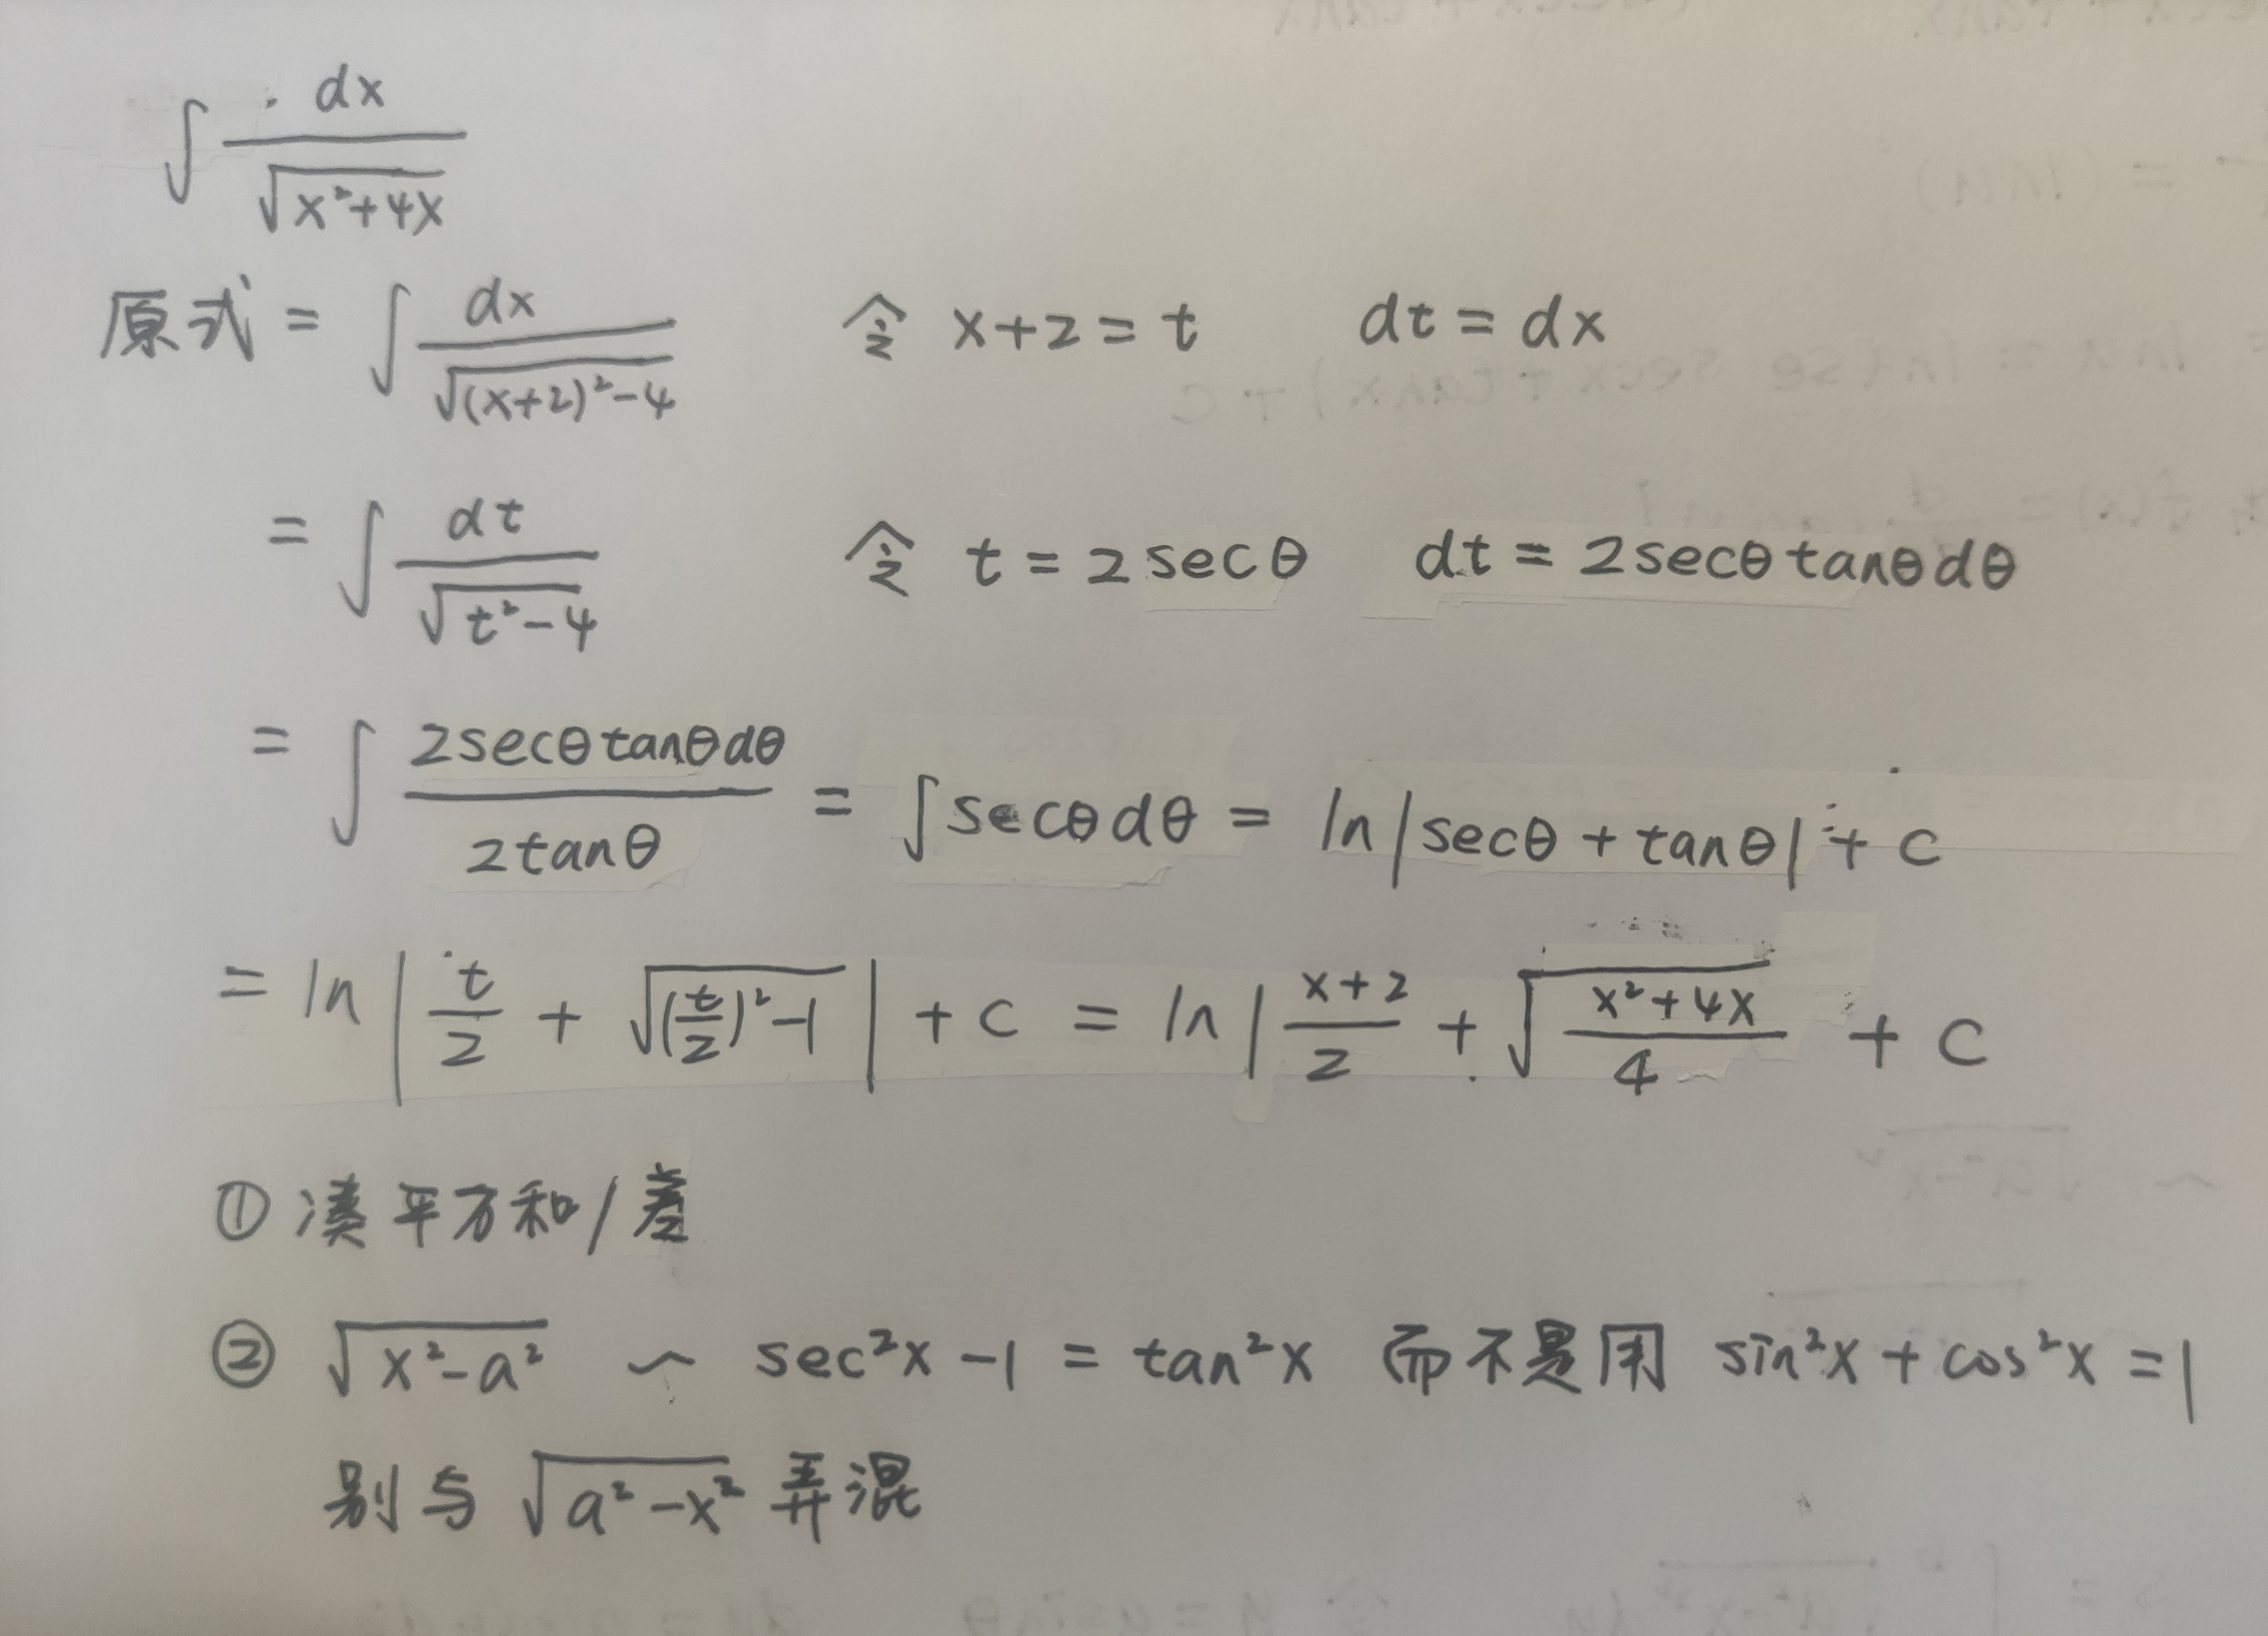 ∫ dx / √(x²+4x)
原式 = ∫ dx / √((x+2)²-4) 令 x+2=t dt=dx
= ∫ dt / √(t²-4) 令 t=2secθ dt=2secθtanθdθ
= ∫ 2secθtanθdθ / 2tanθ = ∫secθdθ = ln|secθ+tanθ|+c
= ln|t/2 + √((t/2)²-1)|+c = ln|(x+2)/2 + √((x²+4x)/4) + c
① 凑平方和/差
② √(x²-a²) ~ sec²x-1=tan²x 而不是用 sin²x+cos²x=1
别与 √(a²-x²) 弄混